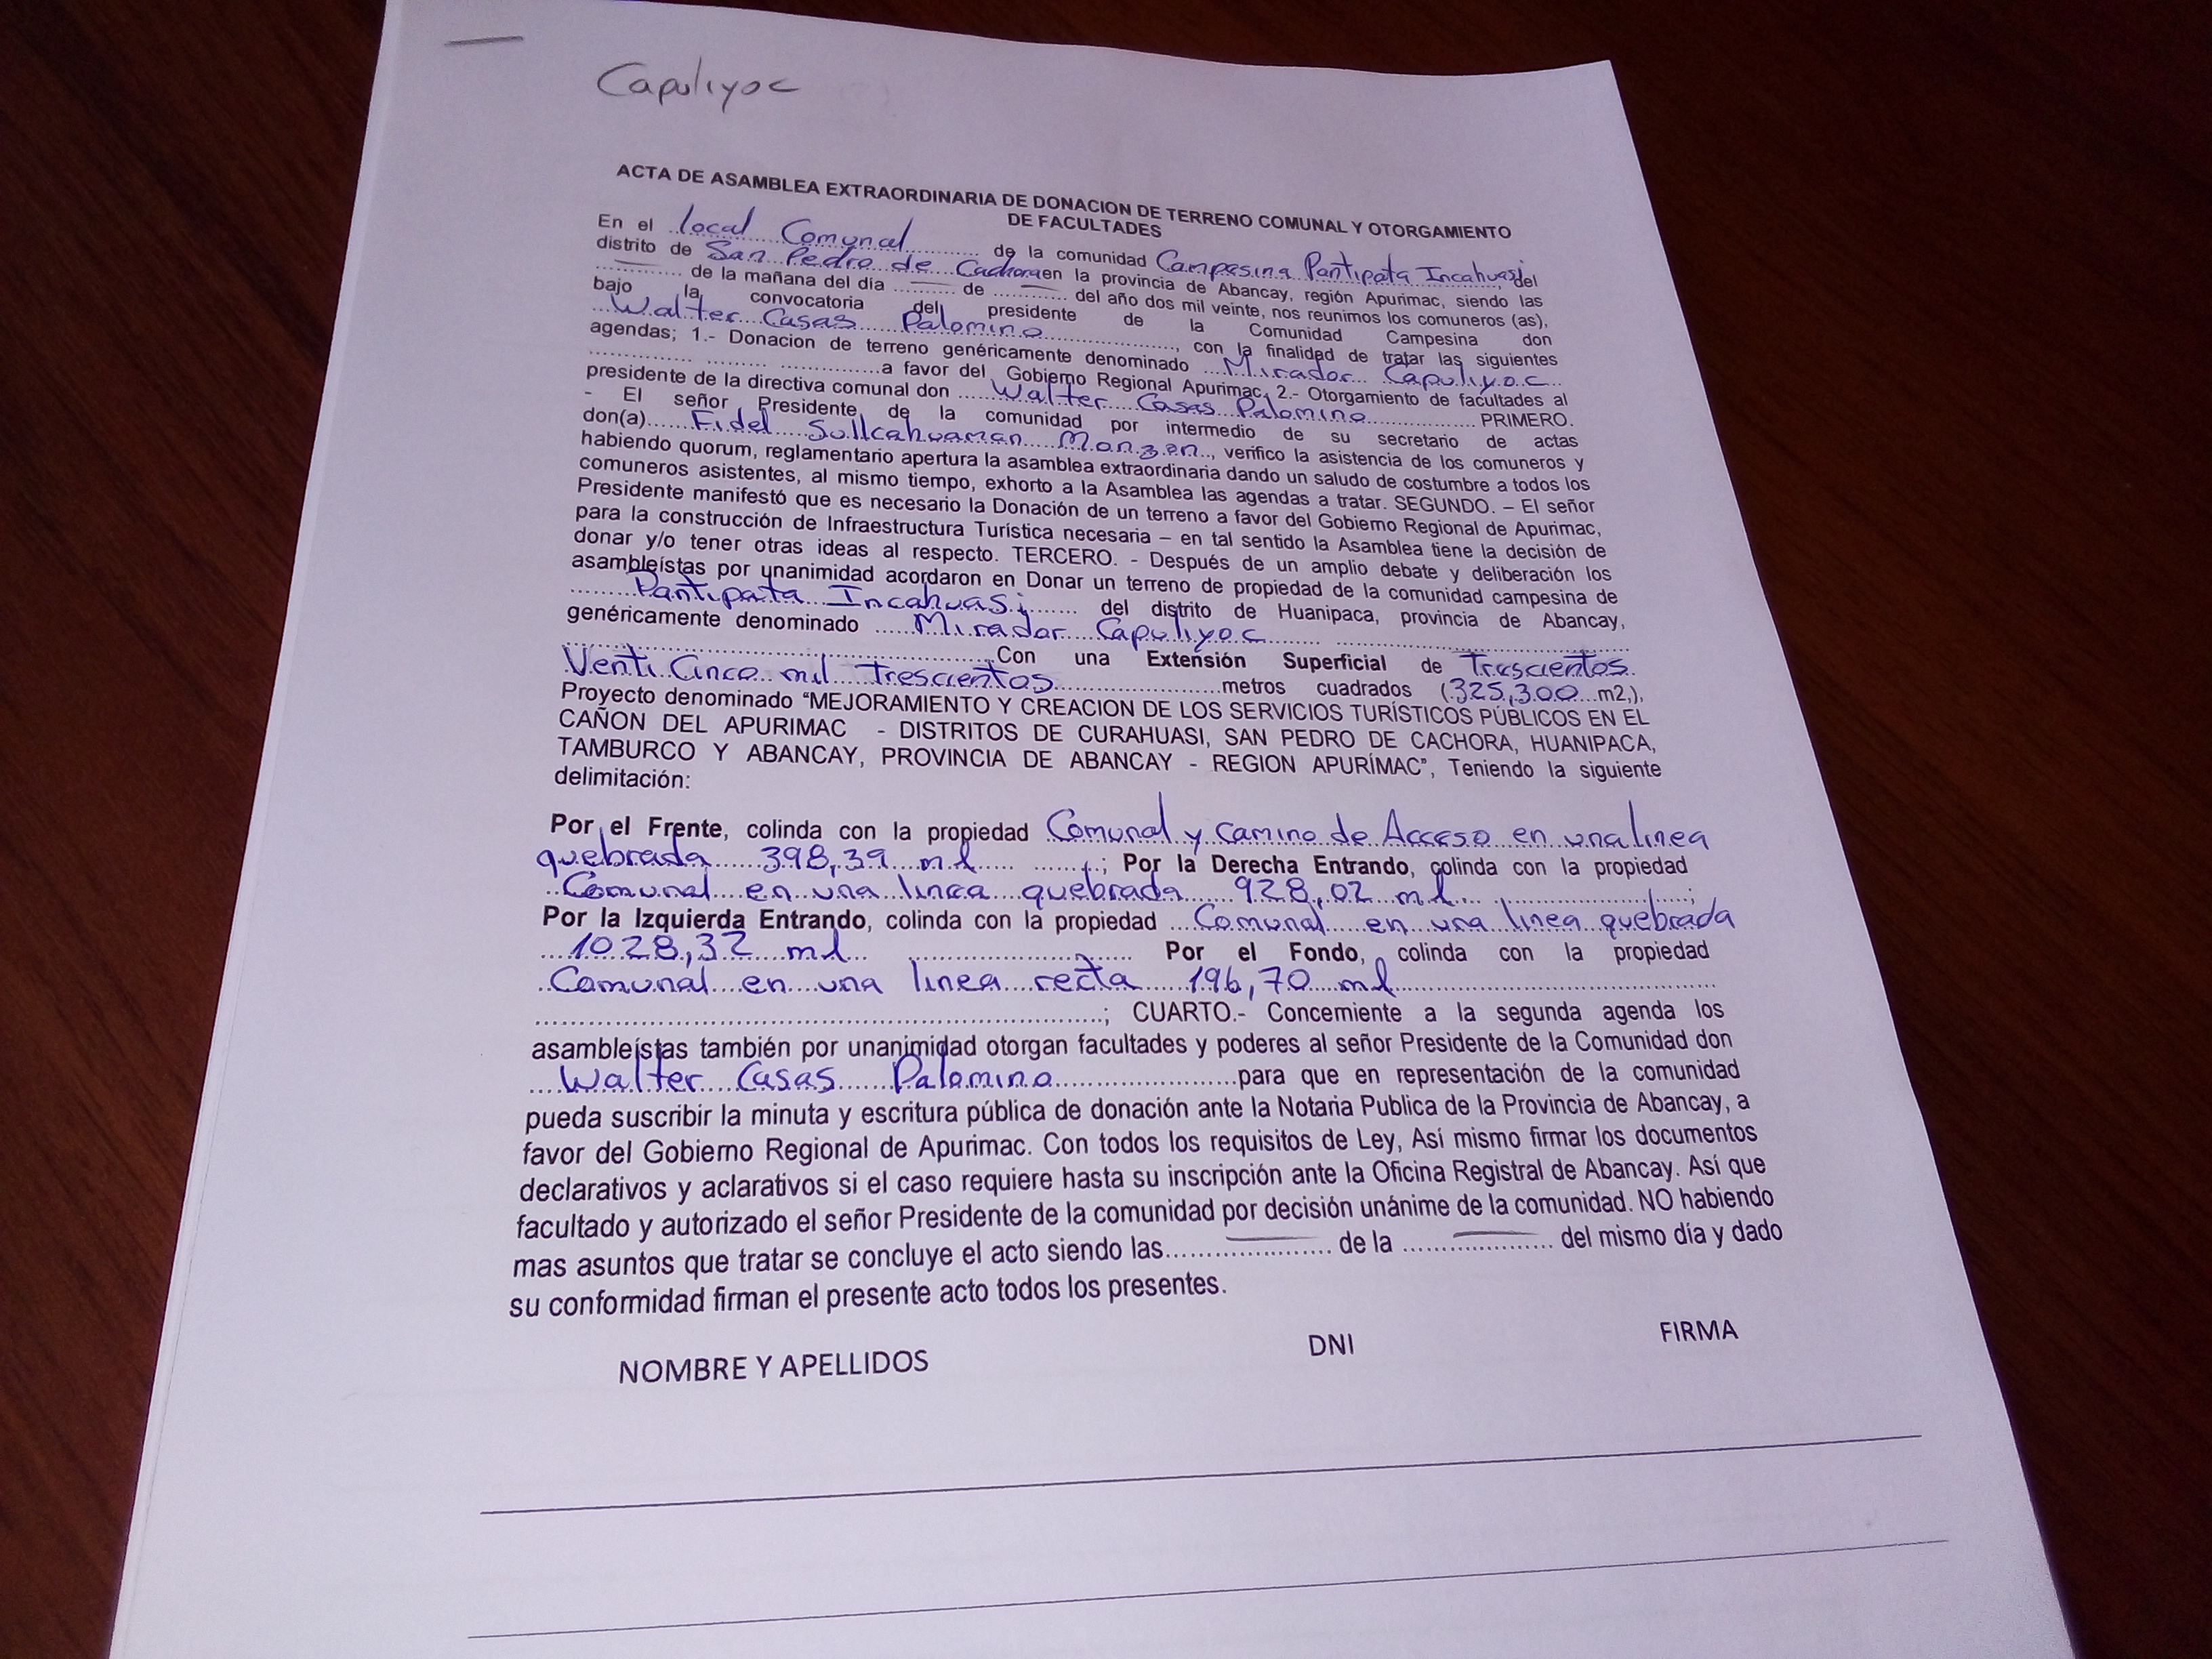 Capuliyoc
ACTA DE ASAMBLEA EXTRAORDINARIA DE DONACION DE TERRENO COMUNAL Y OTORGAMIENTO
DE FACULTADES
En el ..local Comunal............ de la comunidad Campesina Pantipata Incahuasi, del
distrito de San Pedro de Cachora en la provincia de Abancay, región Apurimac, siendo las
.............. de la mañana del día .......... de ............ del año dos mil veinte, nos reunimos los comuneros (as),
bajo la convocatoria del presidente de la Comunidad Campesina don
...Walter Casas Palomino......................, con la finalidad de tratar las siguientes
agendas; 1.- Donacion de terreno genéricamente denominado ...Mirador Capuliyoc...
................ ......... ................a favor del Gobierno Regional Apurimac, 2.- Otorgamiento de facultades al
presidente de la directiva comunal don ......Walter Casas Palomino.................. PRIMERO.
- El señor Presidente de la comunidad por intermedio de su secretario de actas
don(a)......Fidel Sullcahuaman Monzon.., verifico la asistencia de los comuneros y
habiendo quorum, reglamentario apertura la asamblea extraordinaria dando un saludo de costumbre a todos los
comuneros asistentes, al mismo tiempo, exhorto a la Asamblea las agendas a tratar. SEGUNDO. – El señor
Presidente manifestó que es necesario la Donación de un terreno a favor del Gobierno Regional de Apurimac,
para la construcción de Infraestructura Turística necesaria – en tal sentido la Asamblea tiene la decisión de
donar y/o tener otras ideas al respecto. TERCERO. - Después de un amplio debate y deliberación los
asambleístas por unanimidad acordaron en Donar un terreno de propiedad de la comunidad campesina de
.........Pantipata Incahuasi........ del distrito de Huanipaca, provincia de Abancay,
genéricamente denominado ......Mirador Capuliyoc........ ................................
......................................................Con una Extensión Superficial de Trescientos.
Venti Cinco mil Trescientos......................metros cuadrados (.325,300...m2,),
Proyecto denominado “MEJORAMIENTO Y CREACION DE LOS SERVICIOS TURÍSTICOS PÚBLICOS EN EL
CAÑON DEL APURIMAC - DISTRITOS DE CURAHUASI, SAN PEDRO DE CACHORA, HUANIPACA,
TAMBURCO Y ABANCAY, PROVINCIA DE ABANCAY - REGION APURÍMAC”, Teniendo la siguiente
delimitación:
Por el Frente, colinda con la propiedad Comunal y camino de Acceso en una linea
quebrada......398,39 ml...... ........; Por la Derecha Entrando, colinda con la propiedad
..Comunal en una linea quebrada 928,02 ml.... ..........................;
Por la Izquierda Entrando, colinda con la propiedad ...Comunal en una linea quebrada
....1028,32 ml ........................... Por el Fondo, colinda con la propiedad
..Comunal en una linea recta 196,70 ml........................................
..................................................................; CUARTO.- Concerniente a la segunda agenda los
asambleístas también por unanimidad otorgan facultades y poderes al señor Presidente de la Comunidad don
....Walter Casas Palomino......................para que en representación de la comunidad
pueda suscribir la minuta y escritura pública de donación ante la Notaria Publica de la Provincia de Abancay, a
favor del Gobierno Regional de Apurimac. Con todos los requisitos de Ley, Así mismo firmar los documentos
declarativos y aclarativos si el caso requiere hasta su inscripción ante la Oficina Registral de Abancay. Así que
facultado y autorizado el señor Presidente de la comunidad por decisión unánime de la comunidad. NO habiendo
mas asuntos que tratar se concluye el acto siendo las...................... de la .................... del mismo día y dado
su conformidad firman el presente acto todos los presentes.
NOMBRE Y APELLIDOS DNI FIRMA